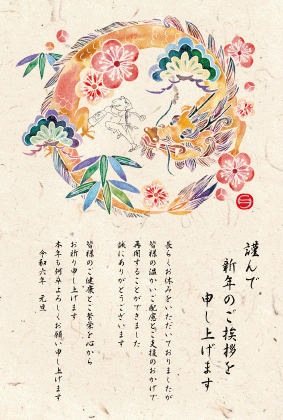 謹んで
新年のご挨拶を
申し上げます
長らくお休みをいただいておりましたが
皆様の温かいご配慮とご支援のおかげで
再開することができました
誠にありがとうございます
皆様のご健康とご繁栄を心から
お祈り申し上げます
本年も何卒よろしくお願い申し上げます
令和六年　元旦